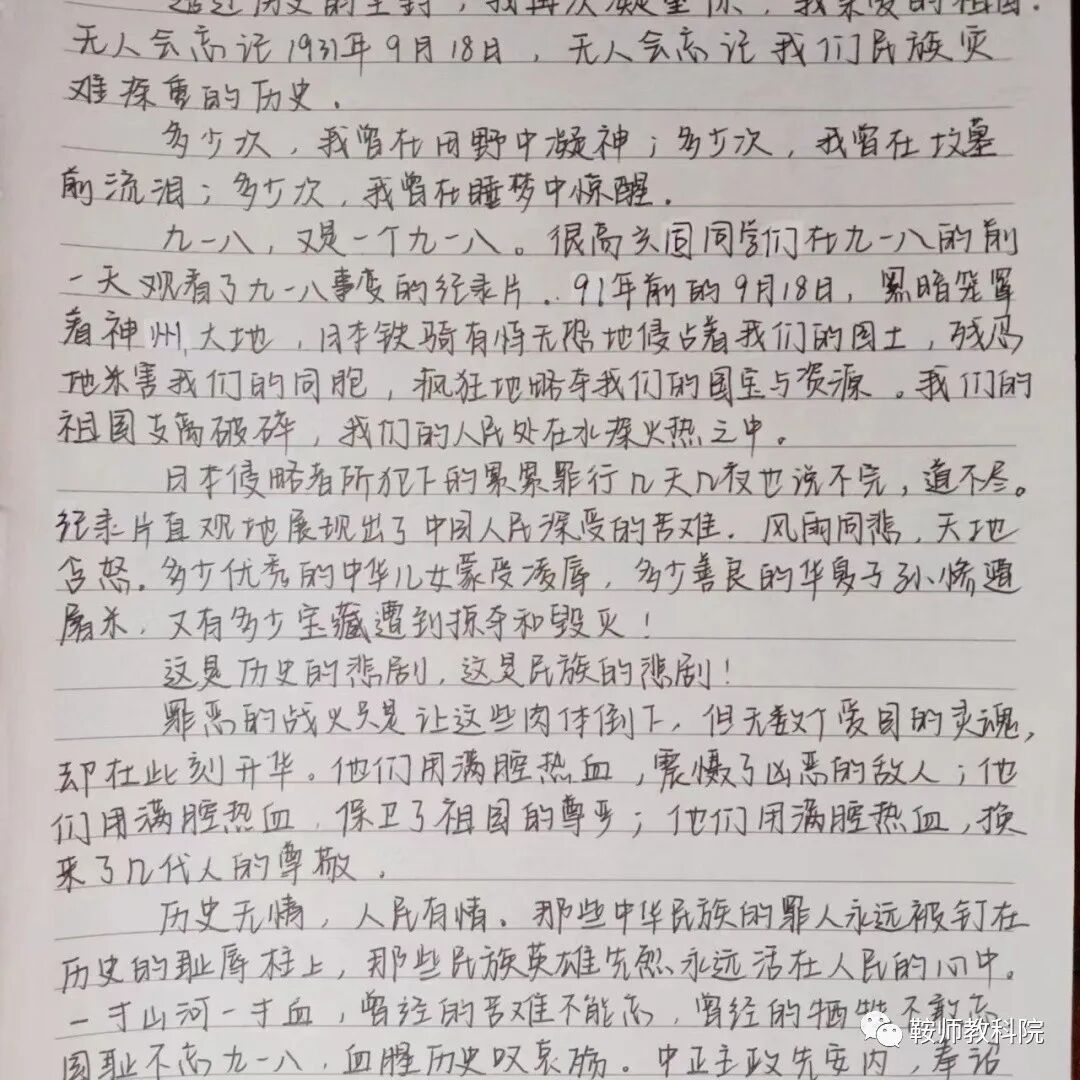 透过历史的尘封，我再次凝望你，我亲爱的祖国.
无人会忘记1931年9月18日，无人会忘记我们民族灾
难深重的历史.
多少次，我曾在田野中凝神；多少次，我曾在坟墓
前流泪；多少次，我曾在睡梦中惊醒.
九一八，又是一个九一八。很高兴同同学们在九一八的前
一天观看了九一八事变的纪录片..91年前的9月18日，黑暗笼罩
着神州大地，日本铁骑有恃无恐地侵占着我们的国土，残忍
地杀害我们的同胞，疯狂地略夺我们的国宝与资源。我们的
祖国支离破碎，我们的人民处在水深火热之中。
日本侵略者所犯下的累累罪行几天几夜也说不完，道不尽。
纪录片直观地展现出了中国人民深受的苦难.风雨同悲，天地
含怒.多少优秀的中华儿女蒙受凌辱，多少善良的华夏子孙惨遭
屠杀，又有多少宝藏遭到掠夺和毁灭！
这是历史的悲剧，这是民族的悲剧！
罪恶的战火只是让这些肉体倒下，但无数个爱国的灵魂，
却在此刻升华。他们用满腔热血，震慑了凶恶的敌人；他
们用满腔热血，保卫了祖国的尊严；他们用满腔热血，换
来了几代人的尊敬.
历史无情，人民有情.那些中华民族的罪人永远被钉在
历史的耻辱柱上，那些民族英雄先烈永远活在人民的心中。
一寸山河一寸血，曾经的苦难不能忘，曾经的牺牲不敢忘
国耻不忘九一八，血腥历史叹哀殇。中正主政先安内，奉诏
鞍师教科院